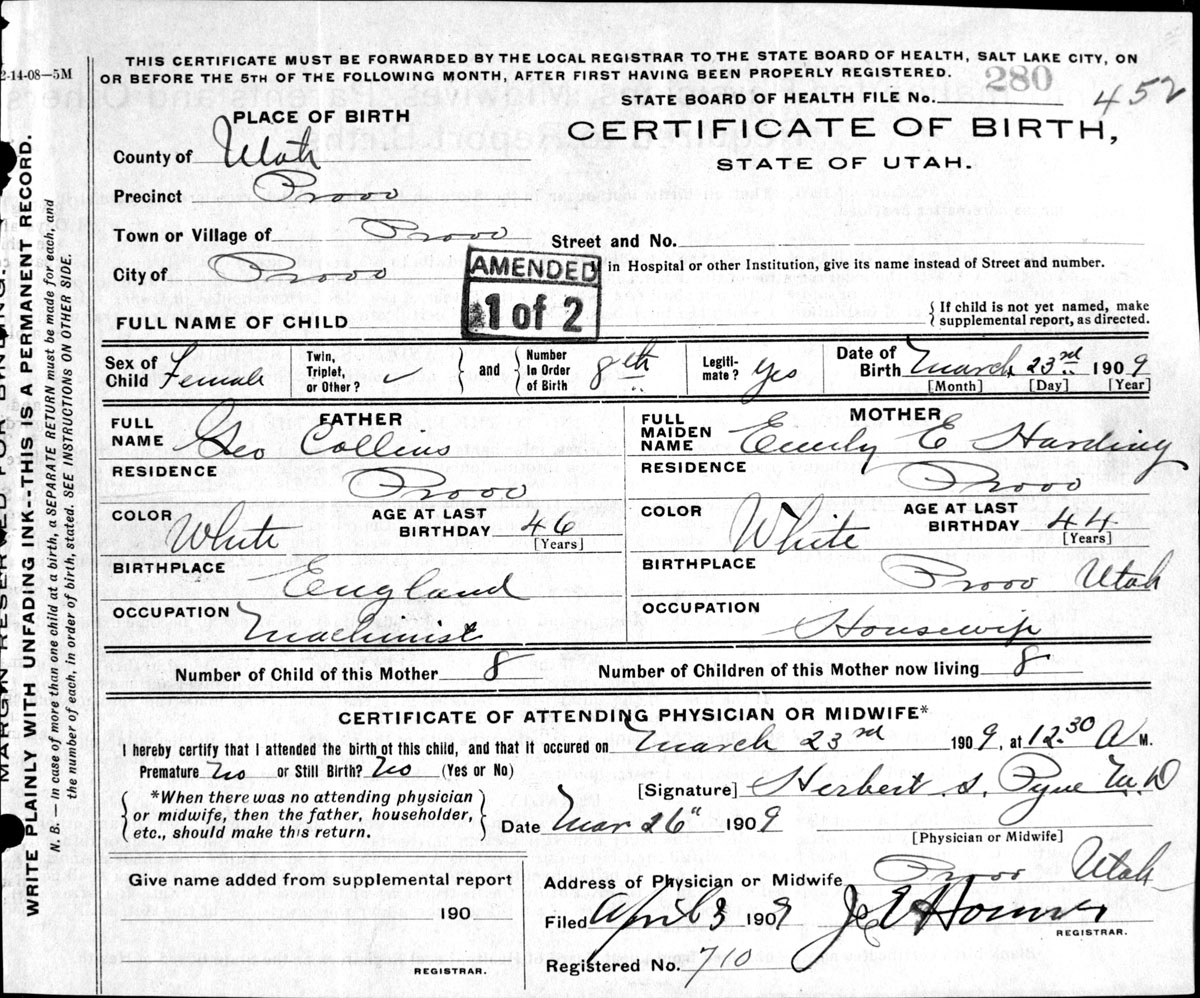 2-14-08—5M
THIS CERTIFICATE MUST BE FORWARDED BY THE LOCAL REGISTRAR TO THE STATE BOARD OF HEALTH, SALT LAKE CITY, ON
OR BEFORE THE 5TH OF THE FOLLOWING MONTH, AFTER FIRST HAVING BEEN PROPERLY REGISTERED.
STATE BOARD OF HEALTH FILE No. 280 452
PLACE OF BIRTH
CERTIFICATE OF BIRTH,
STATE OF UTAH.
County of Utah
Precinct Provo
Town or Village of Provo
Street and No.
City of Provo
AMENDED
1 of 2
in Hospital or other Institution, give its name instead of Street and number.
FULL NAME OF CHILD
{ If child is not yet named, make
supplemental report, as directed.
Sex of Child Female
Twin, Triplet, or Other? ✓ } and { Number In Order of Birth 8th
Legiti- mate? yes
Date of Birth March 23rd 1909
[Month] [Day] [Year]
FATHER
FULL NAME Geo Collins
RESIDENCE Provo
COLOR White
AGE AT LAST BIRTHDAY 46
[Years]
BIRTHPLACE England
OCCUPATION Machinist
MOTHER
FULL MAIDEN NAME Emily E Harding
RESIDENCE Provo
COLOR White
AGE AT LAST BIRTHDAY 44
[Years]
BIRTHPLACE Provo Utah
OCCUPATION Housewife
Number of Child of this Mother 8 Number of Children of this Mother now living 8
CERTIFICATE OF ATTENDING PHYSICIAN OR MIDWIFE*
I hereby certify that I attended the birth of this child, and that it occured on March 23rd 1909, at 12.30 A M.
Premature No or Still Birth? No (Yes or No)
{ *When there was no attending physician
or midwife, then the father, householder,
etc., should make this return. }
[Signature] Herbert S. Pyne M.D
Date Mar 26" 1909
[Physician or Midwife]
Give name added from supplemental report
190
REGISTRAR.
Address of Physician or Midwife Provo Utah
Filed April 3 1909
REGISTRAR.
Registered No. 710
WRITE PLAINLY WITH UNFADING INK--THIS IS A PERMANENT RECORD.
N. B. — In case of more than one child at a birth, a SEPARATE RETURN must be made for each, and
the number of each, in order of birth, stated. SEE INSTRUCTIONS ON OTHER SIDE.